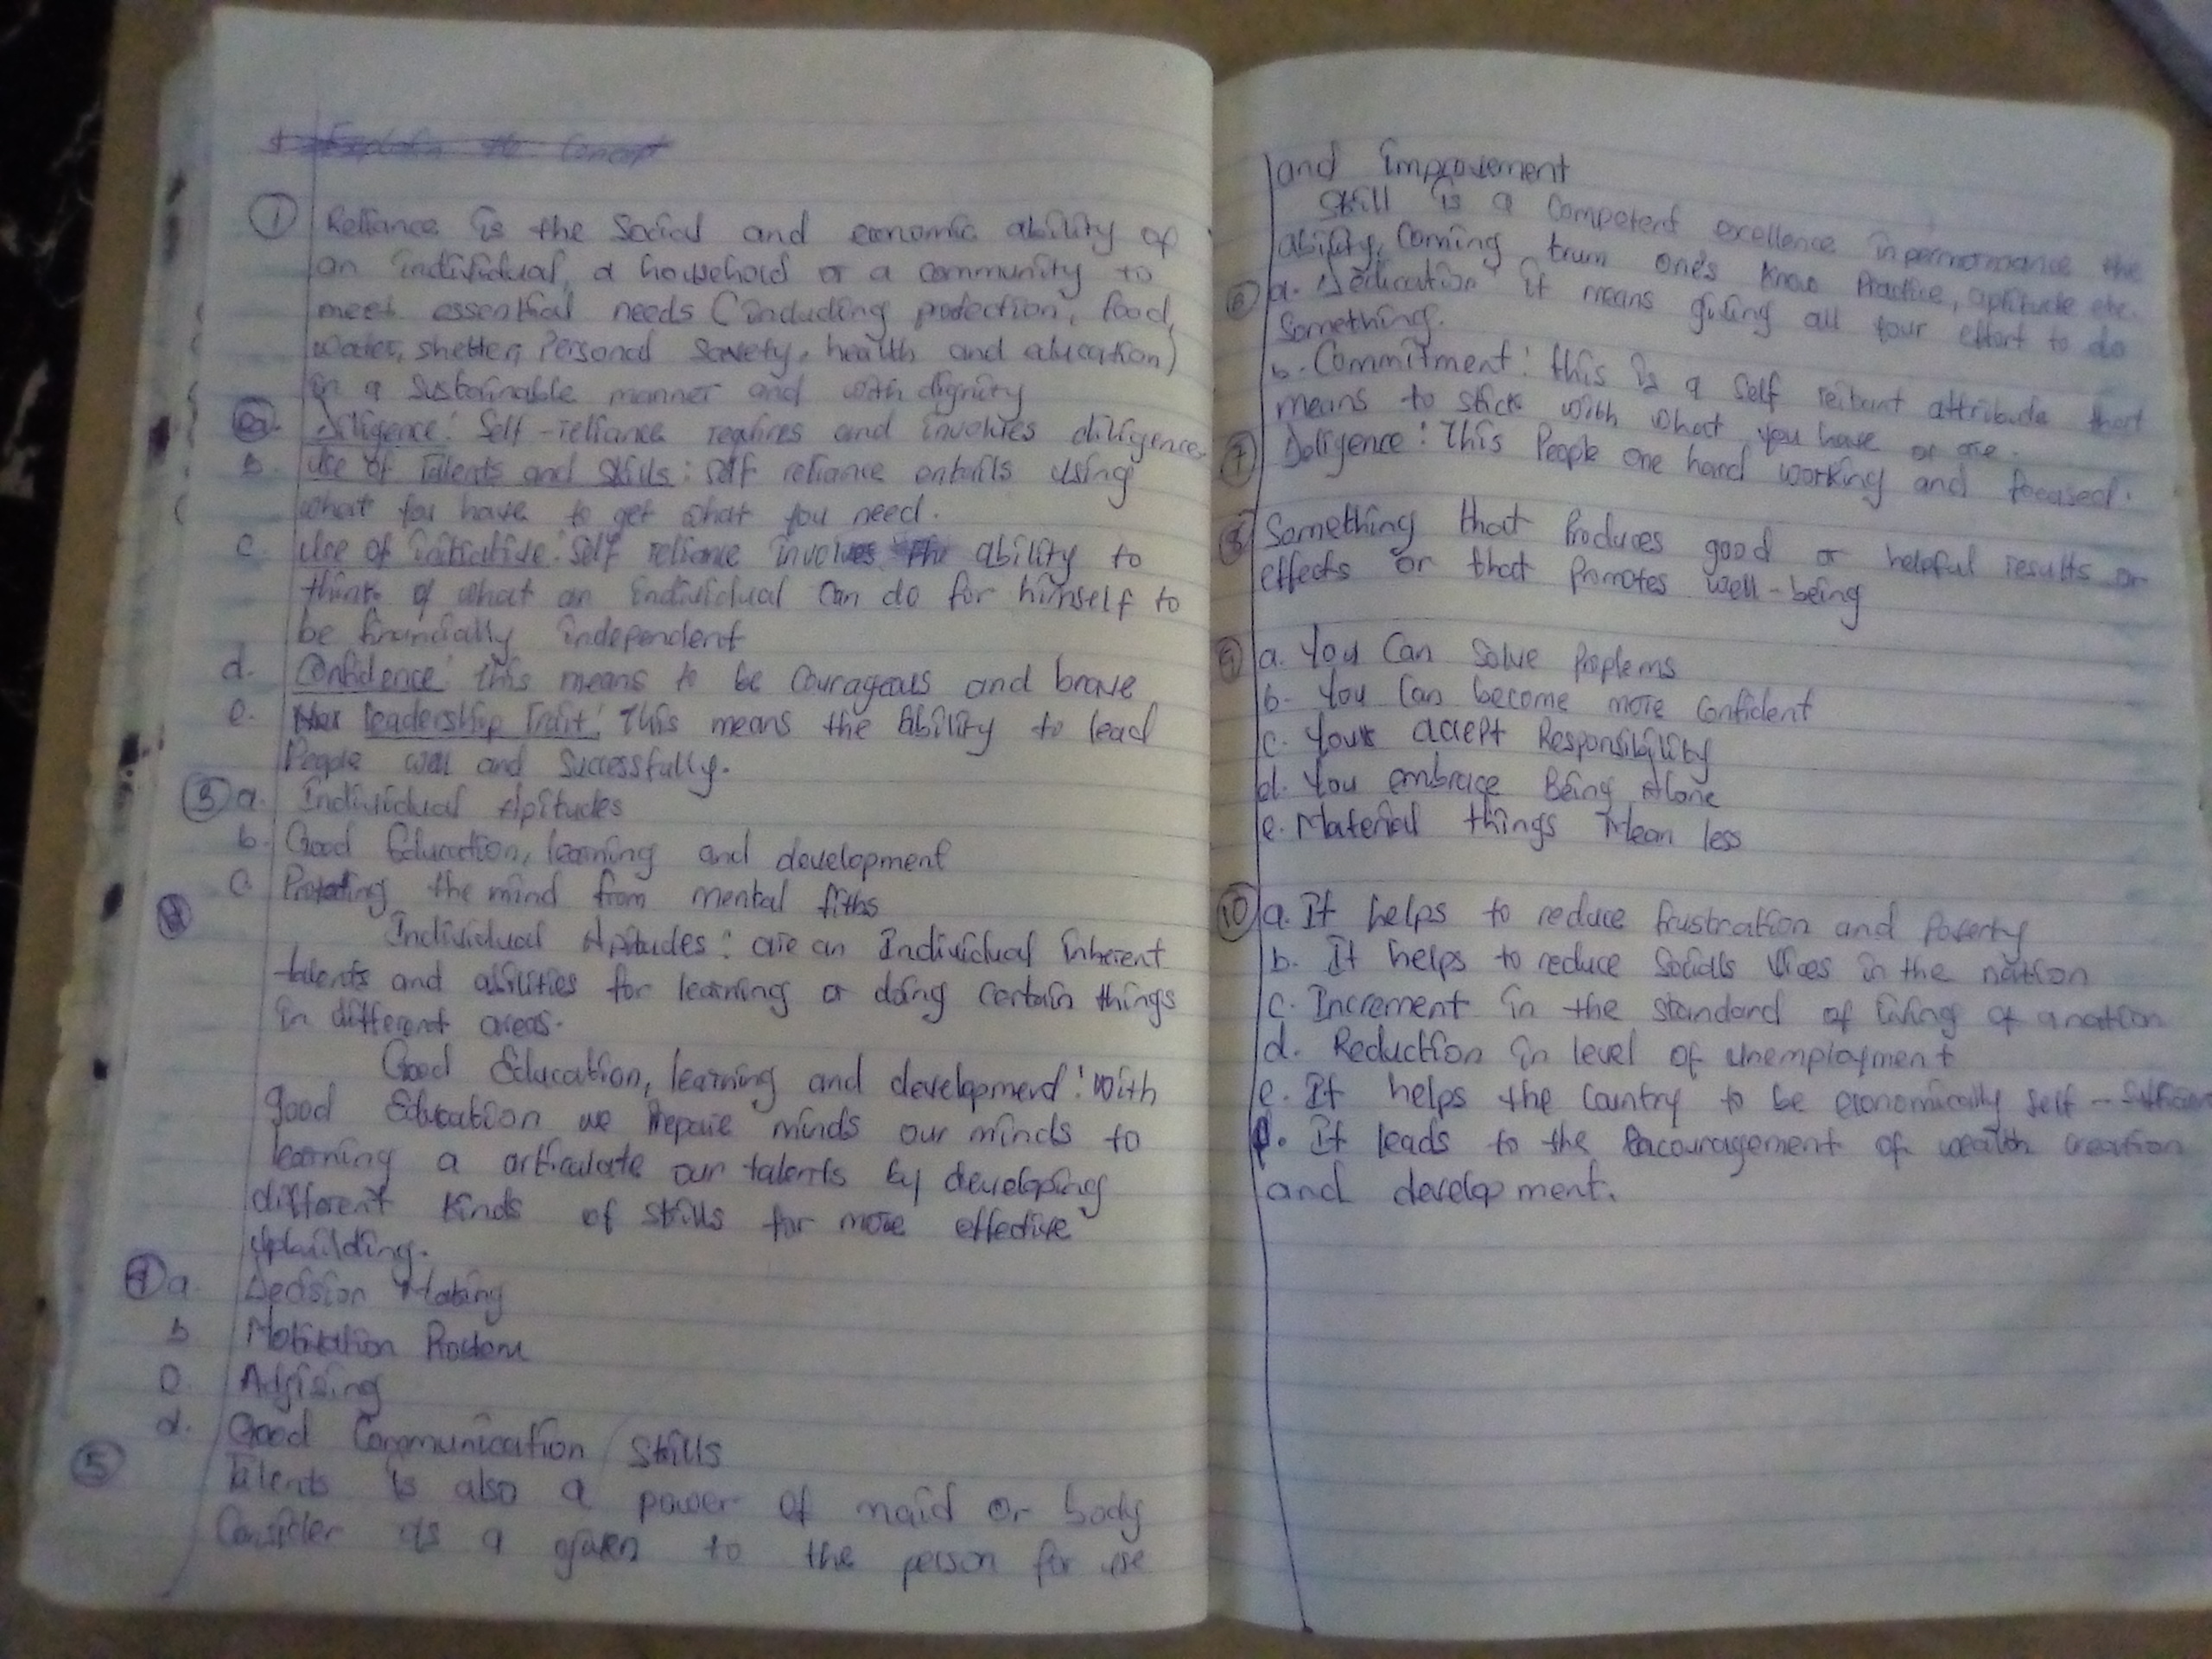 Explain the Concept
① Reliance is the Social and economic ability of
an individual, a household or a community to
meet essential needs (including protection, food,
water, shelter, Personal Savety, health and aducation)
in a Sustainable manner and with dignity
Diligence: Self-reliance requires and involves diligence
B. Use of Talents and Skills: Self reliance entails using
what you have to get what you need.
c. Use of initiative: Self reliance involves the ability to
think of what an individual Can do for himself to
be financially independent
d. Confidence: this means to be Courageous and brave
e. leadership Trait: This means the Ability to lead
People well and Successfully.
③ a. Individual Apitudes
b. Good Education, learning and development
c. Protecting the mind from mental fiths
Individual Apitudes: are an Individual inherent
talents and abilities for learning or doing Certain things
in different areas.
Good Education, learning and development: With
good Education we Prepare minds our minds to
learning a articulate our talents by developing
different Kinds of Skills for more effective
Upbuilding.
④ a. Decision Making
b Motivation
c. Adjising
d. Good Communication Skills
⑤ Talents is also a power of maid or body
Consider as a given to the person for use
and Improvement
Skill is a Competent excellence in permormance the
ability, Coming trum one's Know Practice, aptitude etc.
⑥ a. Dedication it means giving all your effort to do
Something.
b. Commitment: this is a Self attribute that
means to stick with what you have or are.
⑦ Deligence: This People one hard working and focased.
⑧ Something that Produces good or helpful results or
effects or that Promotes well-being
⑨ a. You Can Solve Proplems
b. You Can become more Confident
c. Your accept Responsibility
d. You embrace Being Alone
e. Material things Mean less
⑩ a. It helps to reduce frustration and Poverty
b. It helps to reduce Socials Vices in the nation
c. Increment in the standard of living of a nation
d. Reduction in level of unemployment
e. It helps the Country to be economically self-
f. It leads to the Encouragement of wealth creation
and development.